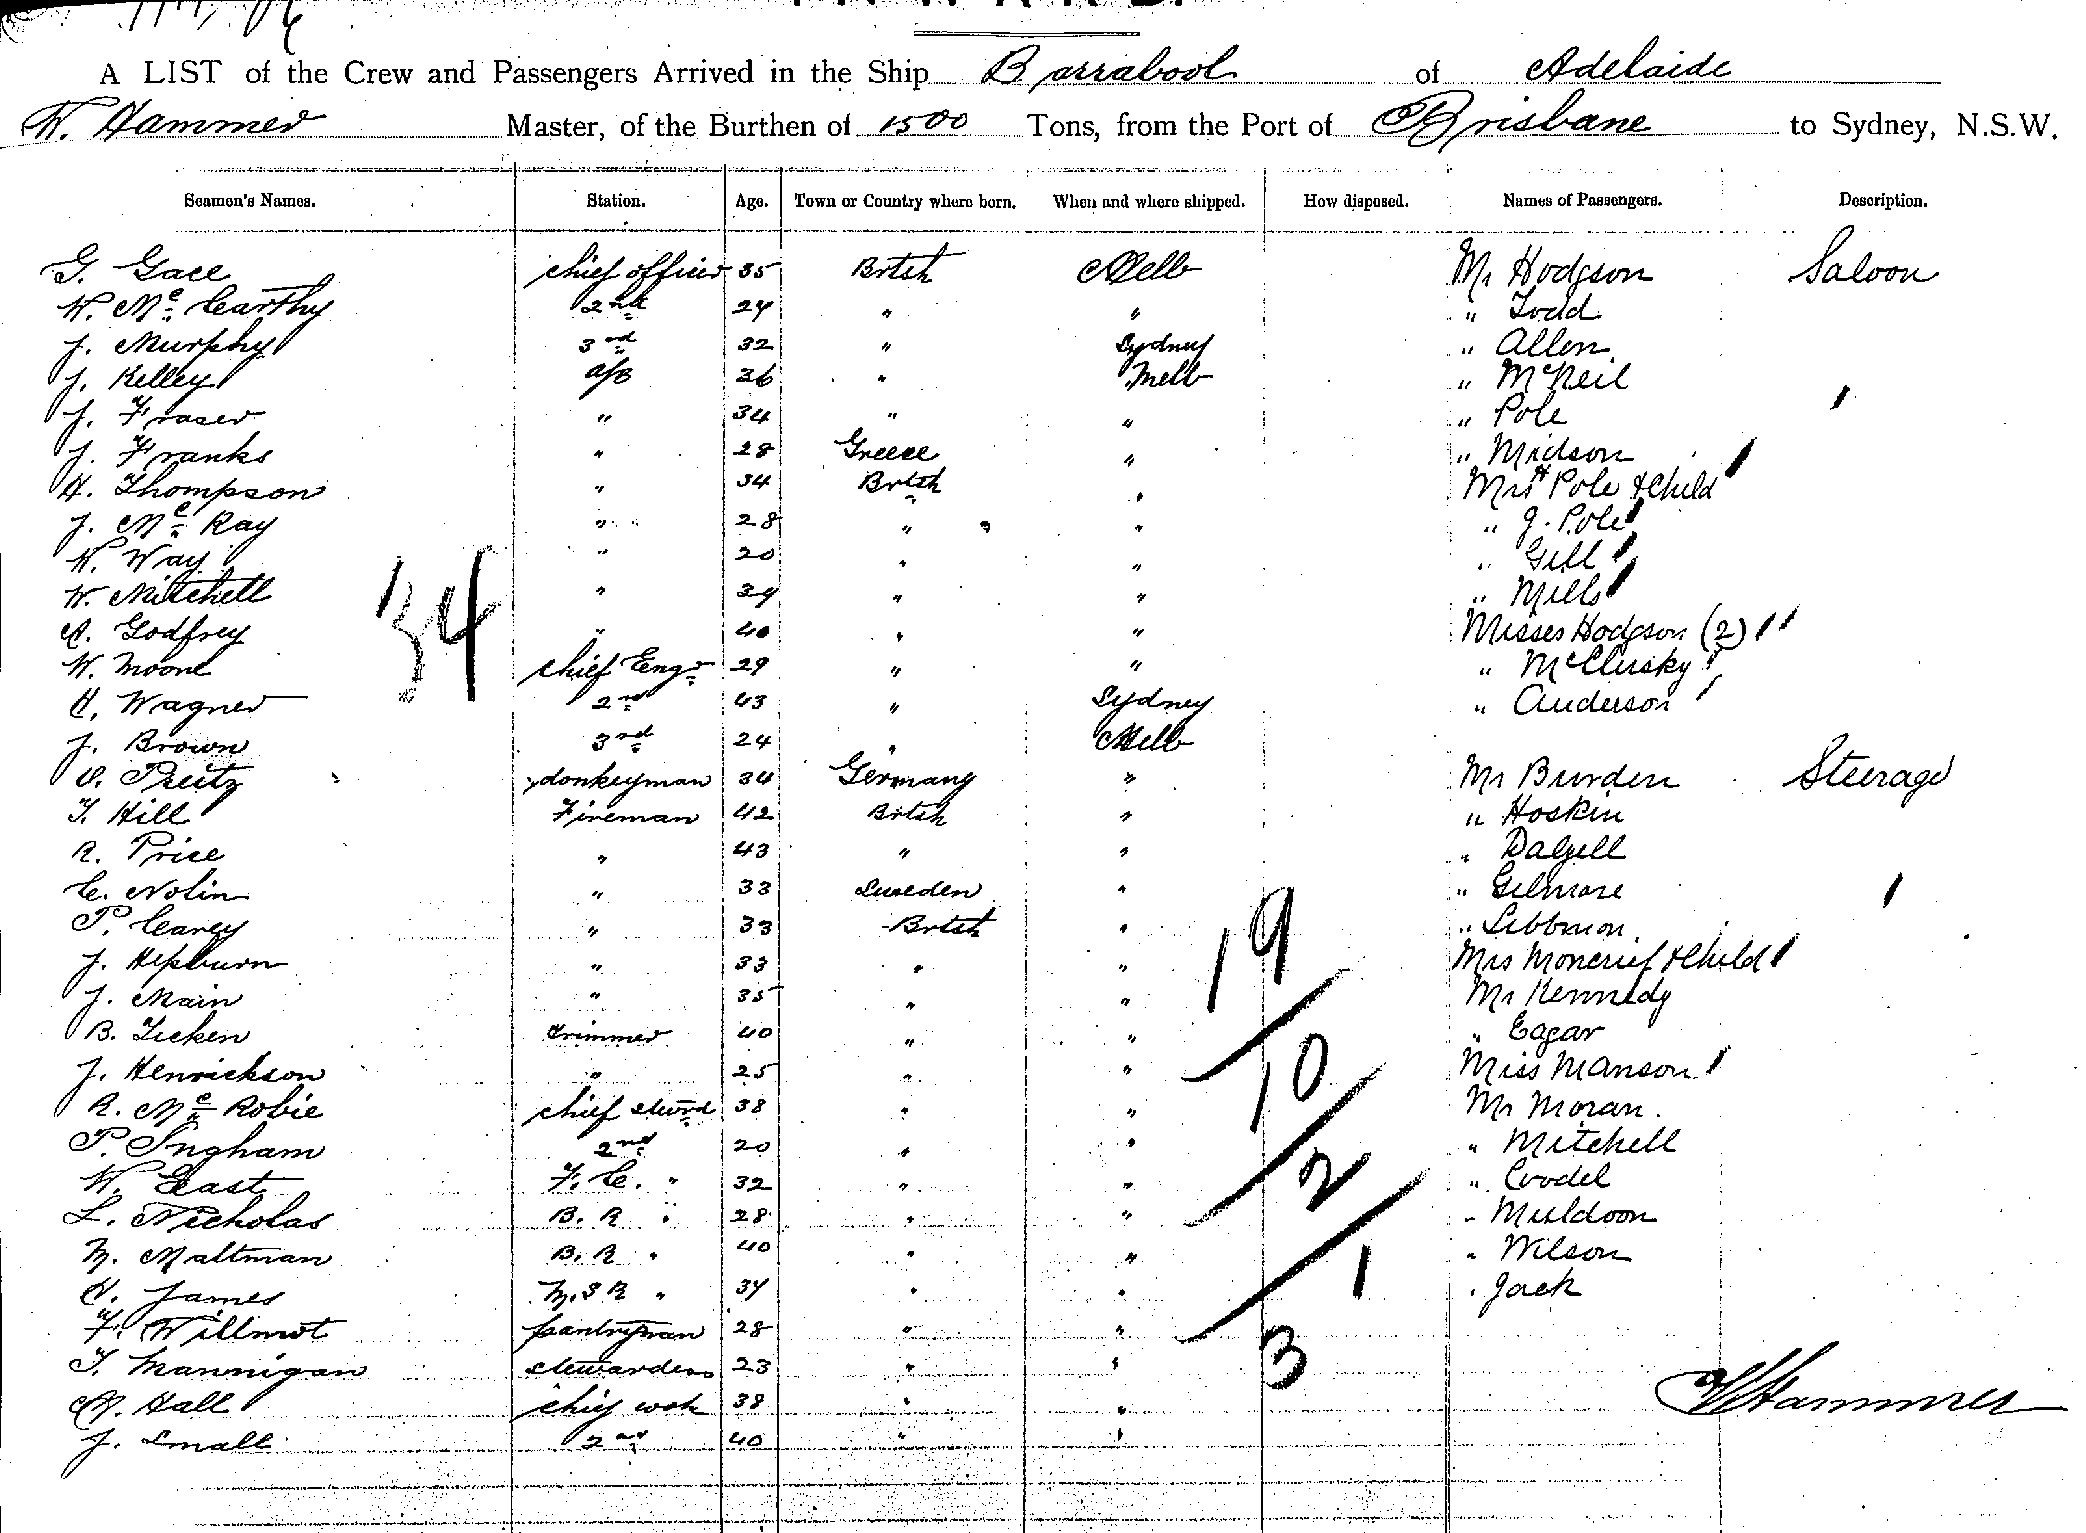 A LIST of the Crew and Passengers Arrived in the Ship Barrabool of Adelaide
W. Hammer Master, of the Burthen of 1500 Tons, from the Port of Brisbane to Sydney, N.S.W.
Seamen's Names. Station. Age. Town or Country where born. When and where shipped. How disposed. Names of Passengers. Description.
G. Gace chief officer 35 Brtsh Melb Mr Hodgson Saloon
W. Mc Carthy 2nd 24 " " " Todd
J. Murphy 3rd 32 " Sydney " Allen
J. Kelley a/B 26 " Melb " McNeil
J. Fraser " 34 " " " Pole
J. Franks " 28 Greece " " Midson
H. Thompson " 34 Brtsh " Mrs H Pole & Child
J. Mc Ray " 28 " " " J. Pole
W. Way " 20 " " " Gill
W. Mitchell " 34 " " " Mills
A. Godfrey " 40 " " Misses Hodgson (2)
34
W. Moore chief Engr 29 " " " McClusky
H. Wagner 2nd 43 " Sydney " Anderson
J. Brown 3rd 24 " Melb
O. Peitz donkeyman 34 Germany " Mr Burden Steerage
T. Hill Fireman 42 Brtsh " " Hoskin
R. Price " 43 " " " Dalzell
C. Nolin " 33 Sweden " " Gilmore
P. Carey " 33 Brtsh " "
J. Hepburn " 33 " " Mrs Moncrief & Child
19
J. Main " 35 " " Mr Kennedy
B. Ticken trimmer 40 " " " Eagar
J. Henrickson " 25 " " Miss Manson
10
R. Mc Robie chief stwrd 38 " " Mr Moran
P. Ingham 2nd 20 " " " Mitchell
W. East F.C. " 32 " "
2
L. Nicholas B.R " 28 " " " Muldoon
M. Maltman B.R " 40 " " " Wilson
1
A. James M.S R " 34 " " " Jack
F. Willmot pantryman 28 " "
T. Mannigan stewardess 23 " "
3
A. Hall chief cook 38 " "
W Hammer
J. Small 2nd 40 " "